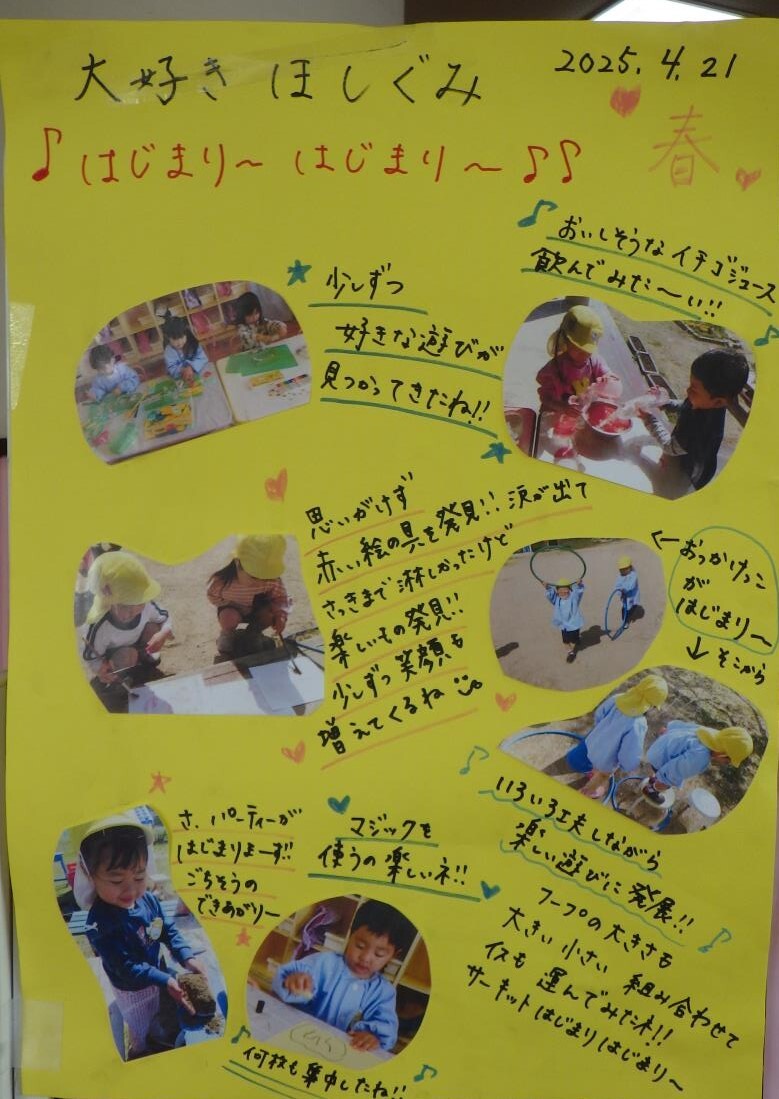 大好き ほしぐみ
2025.4.21
♪はじまり〜 はじまり〜♪♪
春
少しずつ
好きな遊びが
見つかってきたね!!
おいしそうなイチゴジュース
飲んでみた〜い!!
思いがけず
赤い絵の具を発見!! 涙が出て
さっきまで淋しかったけど
楽しいもの発見!!
少しずつ笑顔も
増えてくるね
←おっかけっこ
が
はじまり〜
↓そこから
いろいろ工夫しながら
楽しい遊びに発展!!
フープの大きさも
大きい 小さい 組み合わせて
イスも 運んでみたネ!!
サーキット はじまり はじまり〜
さ、パーティーが
はじまりよーす!!
ごちそうの
できあがり〜
マジックを
使うの 楽しいネ!!
何枚も集中したね!!